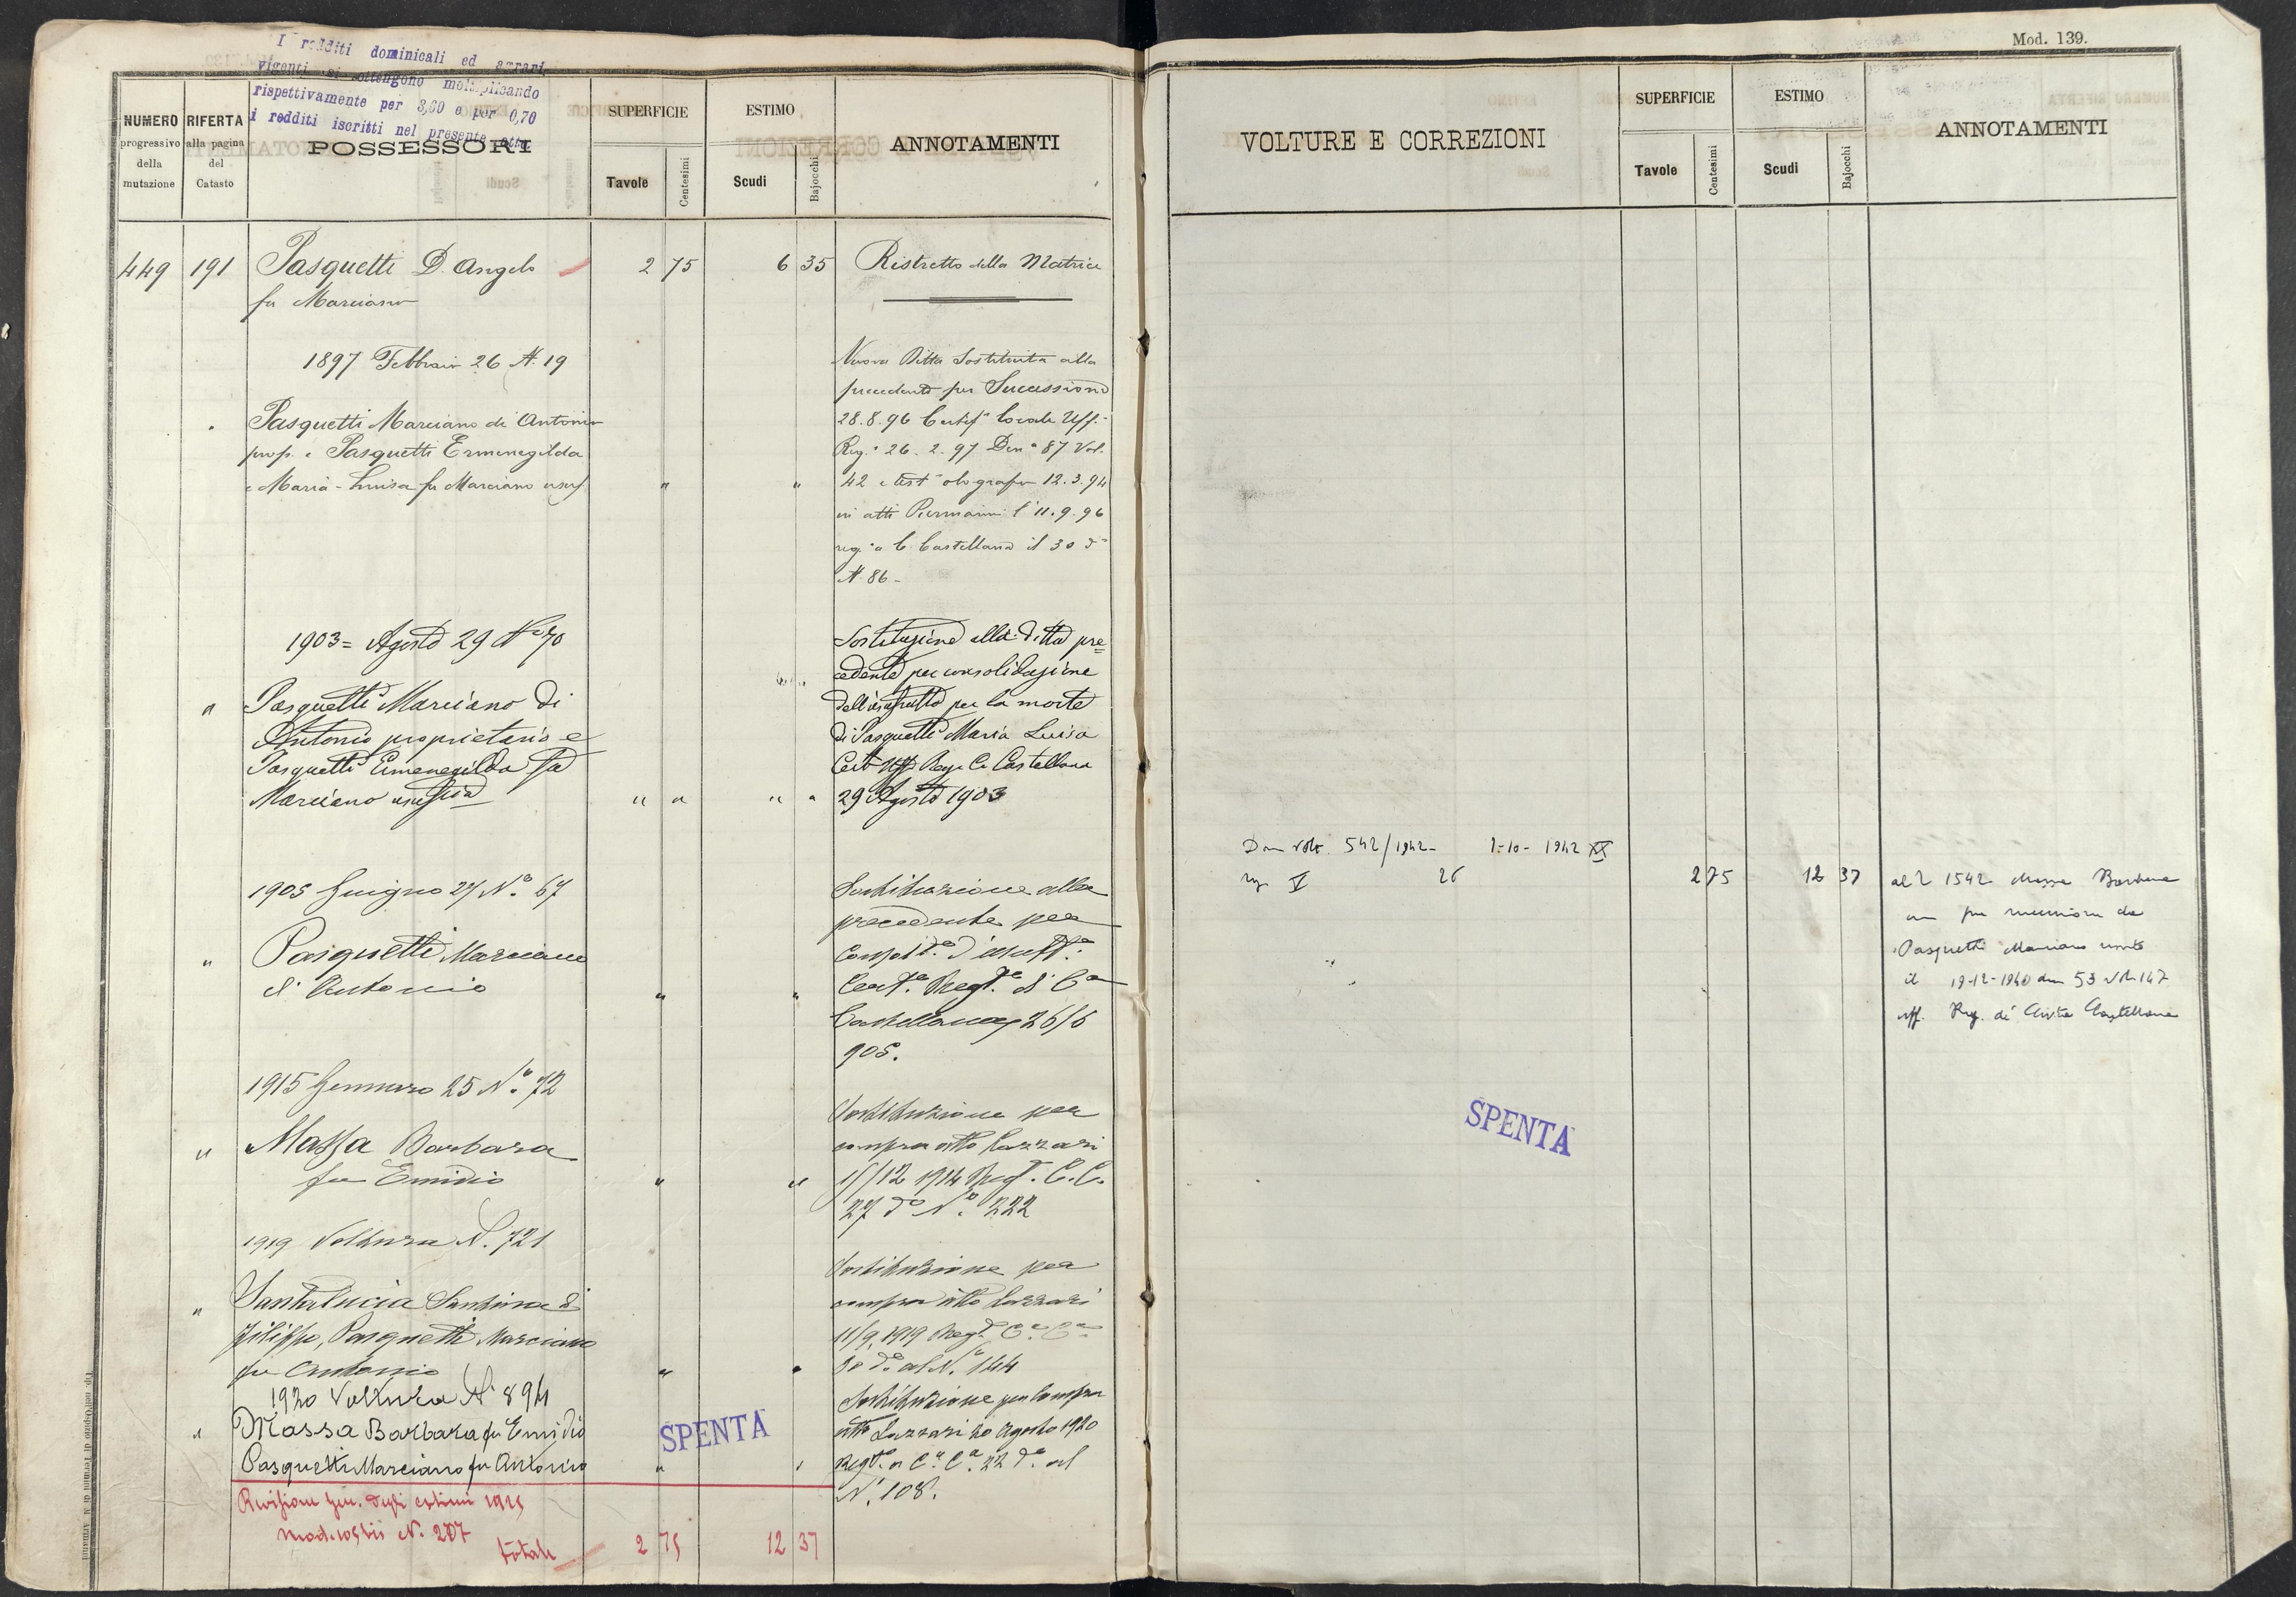 I redditi dominicali ed agrari
vigenti si ottengono moltiplicando
rispettivamente per 3,60 e per 0,70
i redditi iscritti nel presente atto
NUMERO progressivo della mutazione
RIFERTA alla pagina del Catasto
POSSESSORI
SUPERFICIE
Tavole
Centesimi
ESTIMO
Scudi
Bajocchi
ANNOTAMENTI
449 191 Pasquetti D. Angelo 2 75 6 35 Ristretto della Matrice
fu Marciano
1897 Febbraio 26 N. 19
Pasquetti Marciano di Antonio
prop. e Pasquetti Ermenegilda
e Maria-Luisa fu Marciano usuf. " "
Nuova Ditta sostituita alla
precedente per Successione
28.8.96 Certif.o locale Uff.
Reg.o 26.2.97 Den.a 87 Vol.
42 e test.o olografo 12.3.94
in atti Piermarini l'11.9.96
reg.o a C. Castellana il 30 d.o
N. 86-
1903= Agosto 29 No 70
" Pasquetti Marciano di
Antonio proprietario e
Pasquetti Ermenegilda fu
Marciano usufria " " " "
Sostituzione alla Ditta pre=
cedente per consolidazione
dell'usufrutto per la morte
di Pasquetti Maria Luisa
Cert. Uff. Reg. C. Castellana
29 Agosto 1903
1905 Giugno 27 No. 67
" Pasquetti Marciano
di Antonio " "
Sostituzione alla
precedente per
Consol.ne d'usuft.o
Cert.o Regt.o di C.a
Castellana 26/6
905.
1915 Gennaro 25 No. 72
" Massa Barbara
fu Emidio " "
Sostituzione per
compra atto Lazzari
11/12 1914 Regt. C.C.
27 d.o No. 222
1919 Voltura N. 721
" Santalucia Santina di
Filippo, Pasquetti Marciano
fu Antonio " "
Sostituzione per
compra atto Lazzari
11/9 1919 Regt. C.a C.a
30 d.o al No. 144
1920 Voltura N. 894
" Massa Barbara fu Emidio
Pasquetti Marciano fu Antonio " "
SPENTA
Sostituzione per Compra
atto Lazzari 20 Agosto 1920
Regt.o a C.a C.a 22 d.o al
N. 108.
Revisione gen. degli estimi 1925
mod. N. 207
totale 2 75 12 37
Mod. 139.
VOLTURE E CORREZIONI
SUPERFICIE
Tavole
Centesimi
ESTIMO
Scudi
Bajocchi
ANNOTAMENTI
Dom volt. 542/1942- 1-10-1942 XX
V 26 2 75 12 37
1542 Massa Barbara
per riunione da
Pasquetti Marciano morto
il 19-12-1940 den 53 vol 147
uff. Reg. di Civita Castellana
SPENTA